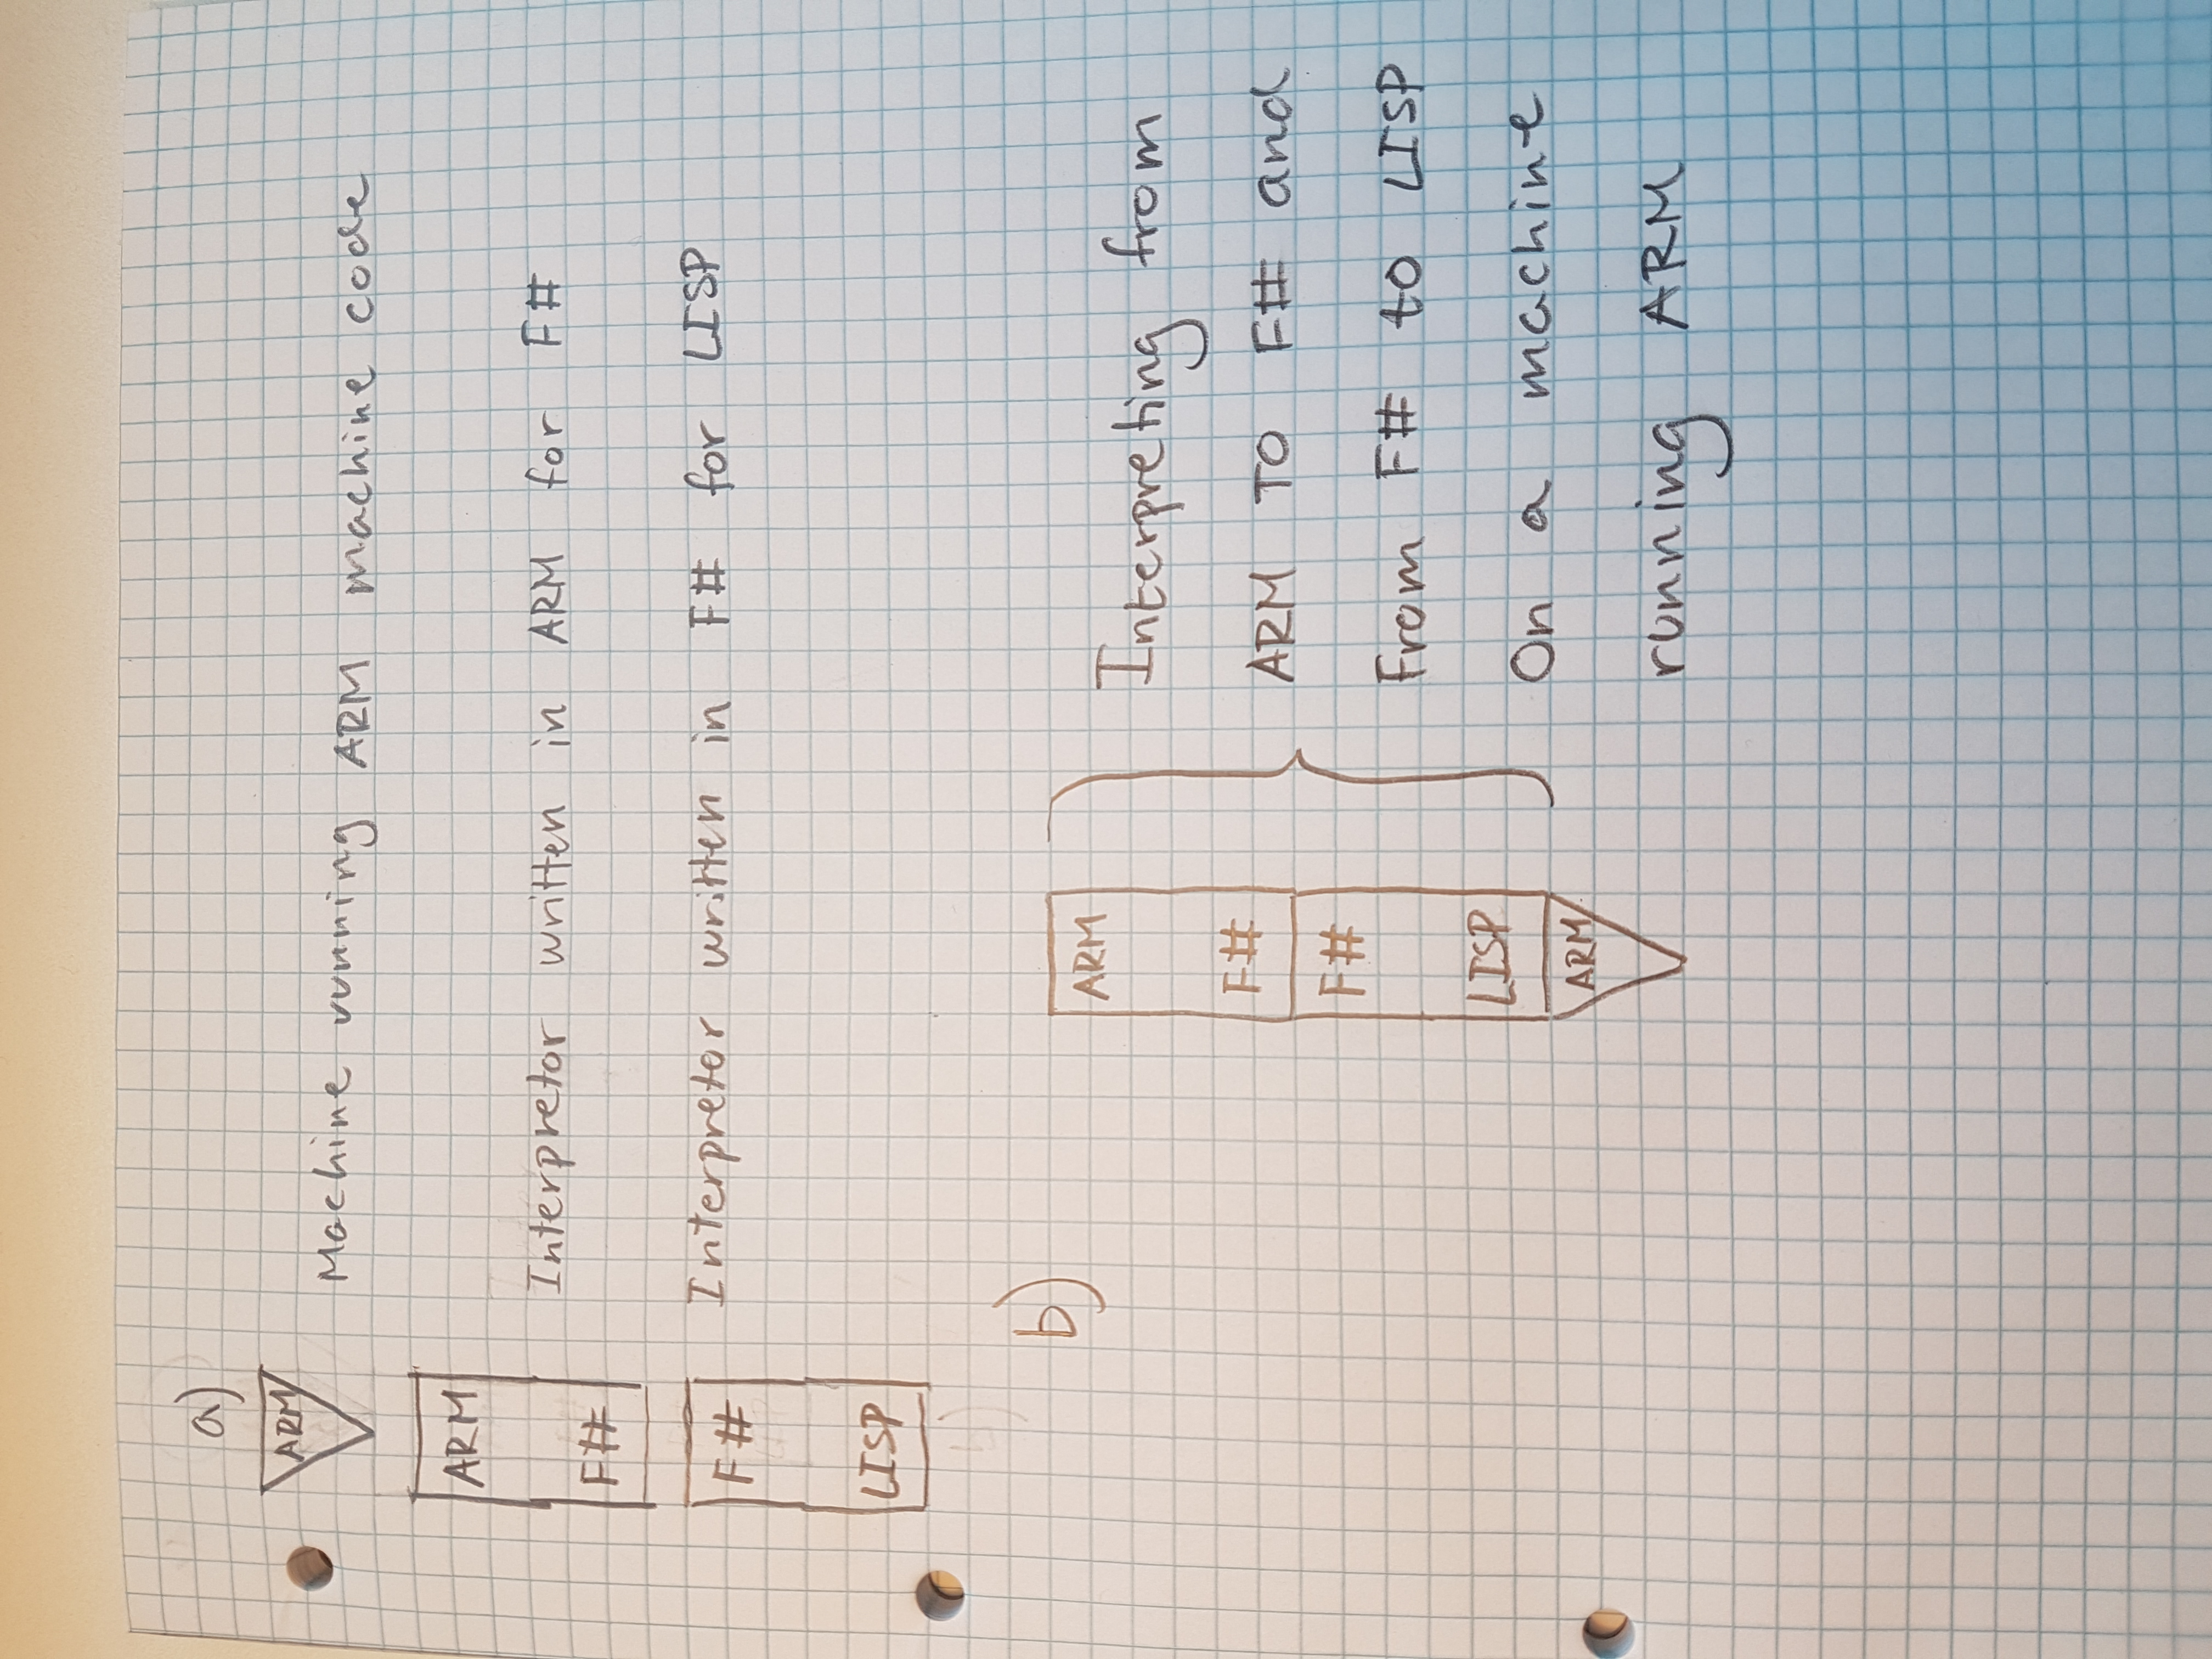 a)
ARM
Machine running ARM machine code
ARM
Interpretor written in ARM for F#
F#
F# Interpretor written in F# for LISP
LISP
b)
ARM
Interpreting from
F#
ARM TO F# and
F#
From F# to LISP
LISP
On a machine
ARM
running ARM